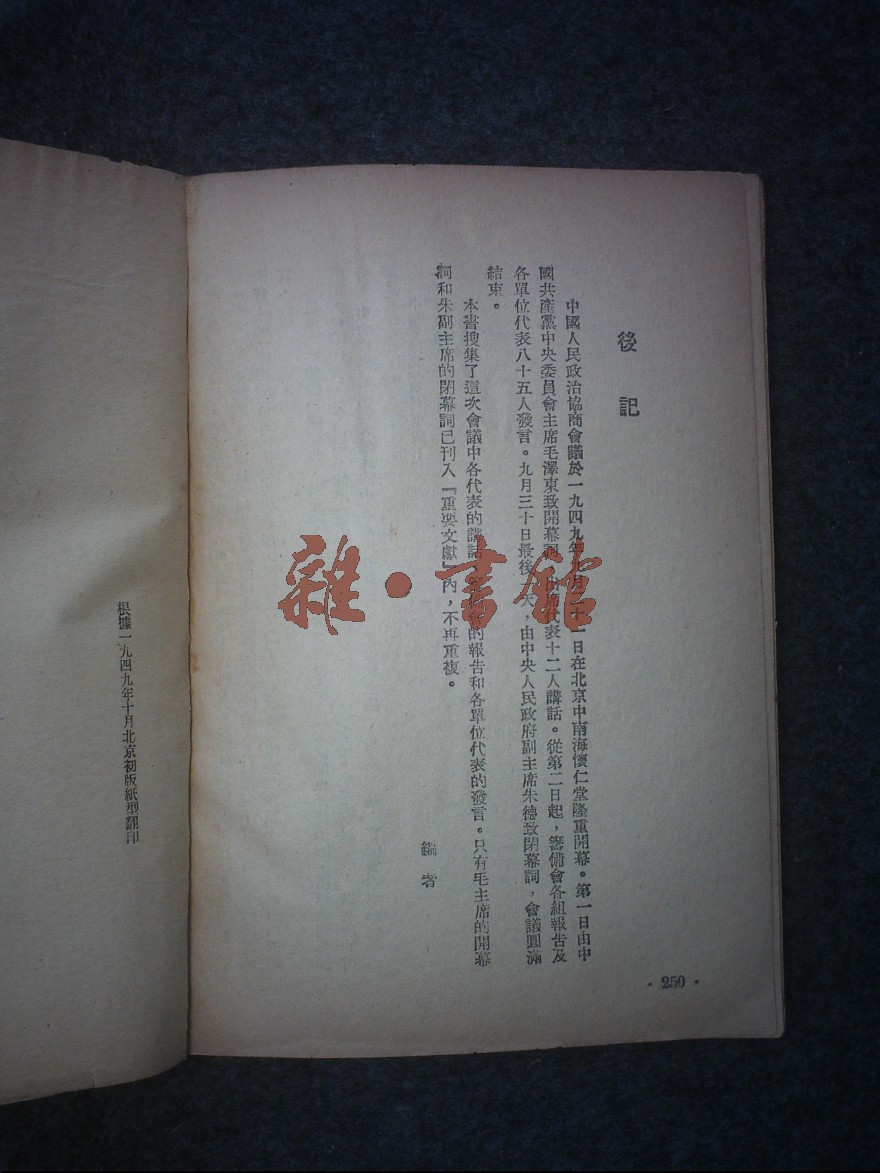 後記
中國人民政治協商會議於一九四九年九月二十一日在北京中南海懷仁堂隆重開幕。第一日由中
國共產黨中央委員會主席毛澤東致開幕詞,出席代表十二人講話。從第二日起,籌備會各組報告及
各單位代表八十五人發言。九月三十日最後一天,由中央人民政府副主席朱德致閉幕詞,會議圓滿
結束。
本書搜集了這次會議中各代表的講話,籌備會的報告和各單位代表的發言。只有毛主席的開幕
詞和朱副主席的閉幕詞已刊入『重要文獻』內,不再重複。
編者
·250·
根據一九四九年十月北京初版紙型翻印
雜·書館